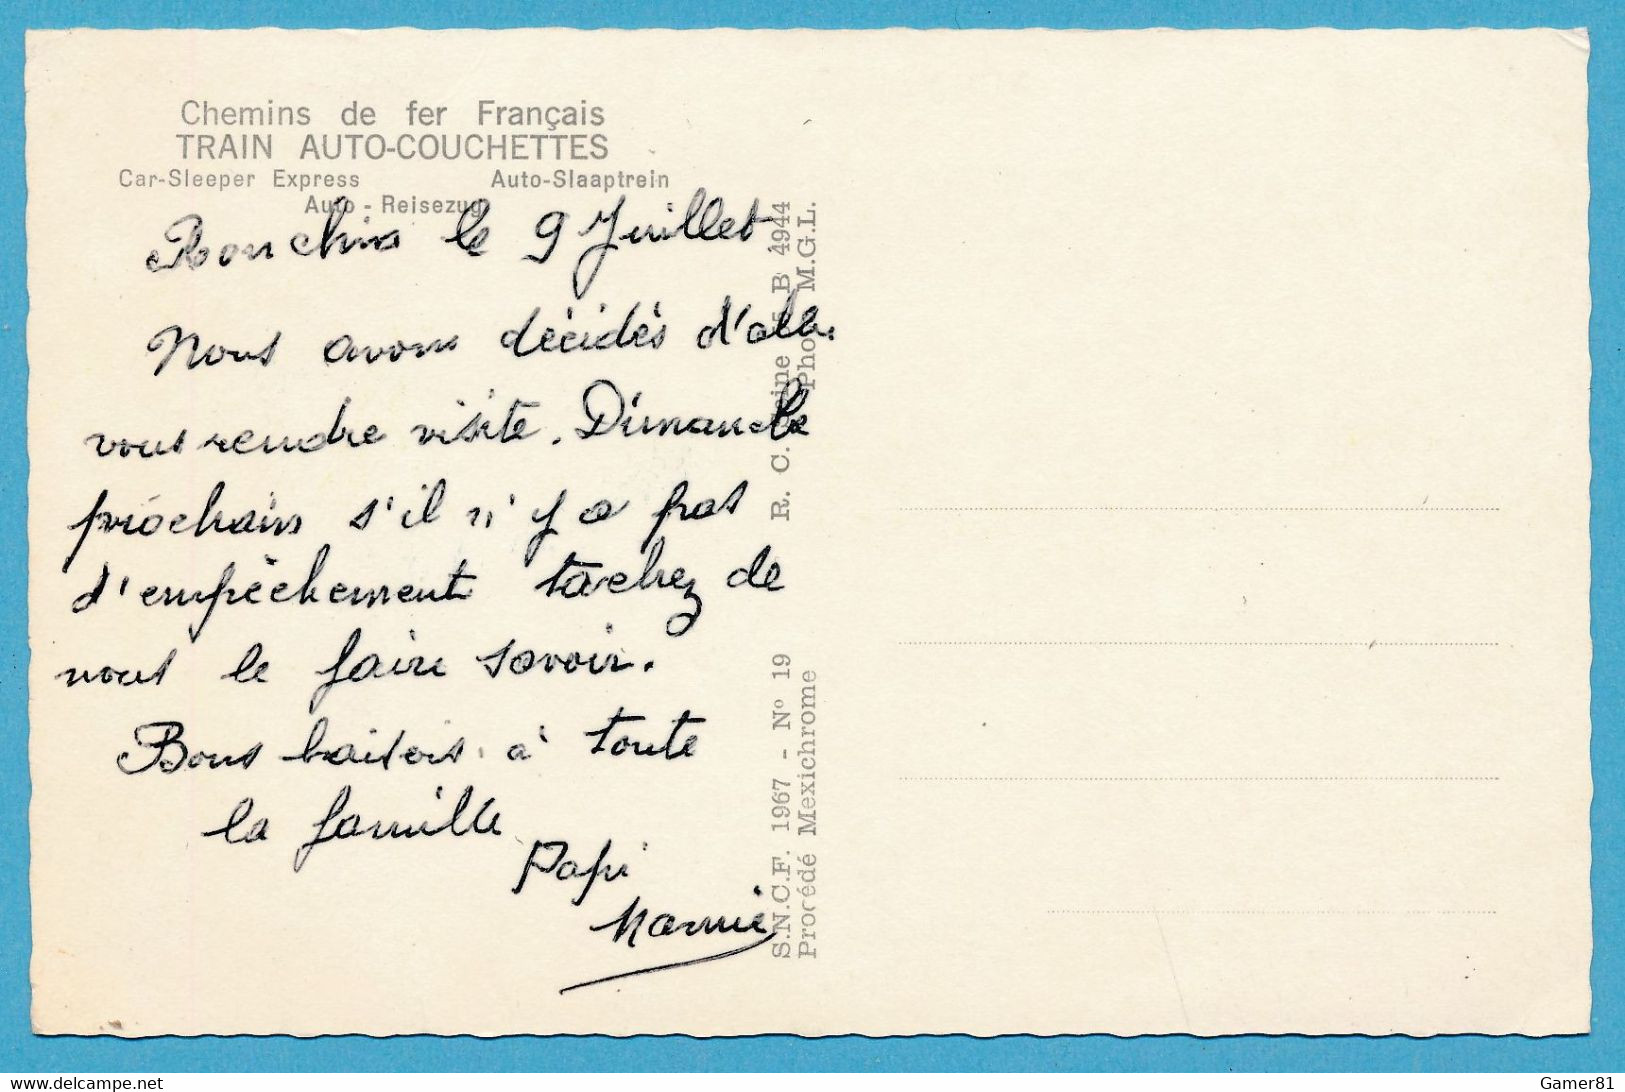 Chemins de fer Français
TRAIN AUTO-COUCHETTES
Car-Sleeper Express Auto-Slaaptrein
Auto - Reisezug
Ronchin le 9 Juillet
Nous avons décidés d'aller
vous rendre visite. Dimanche
prochain s'il n'y a pas
d'empêchement tachez de
nous le faire savoir.
Bons baisers à toute
la famille
Papi
Mamie
S.N.C.F. 1967 - Nº 19 R. C. B 4944
Procédé Mexichrome Photo M.G.L.
www.delcampe.net
Gamer81